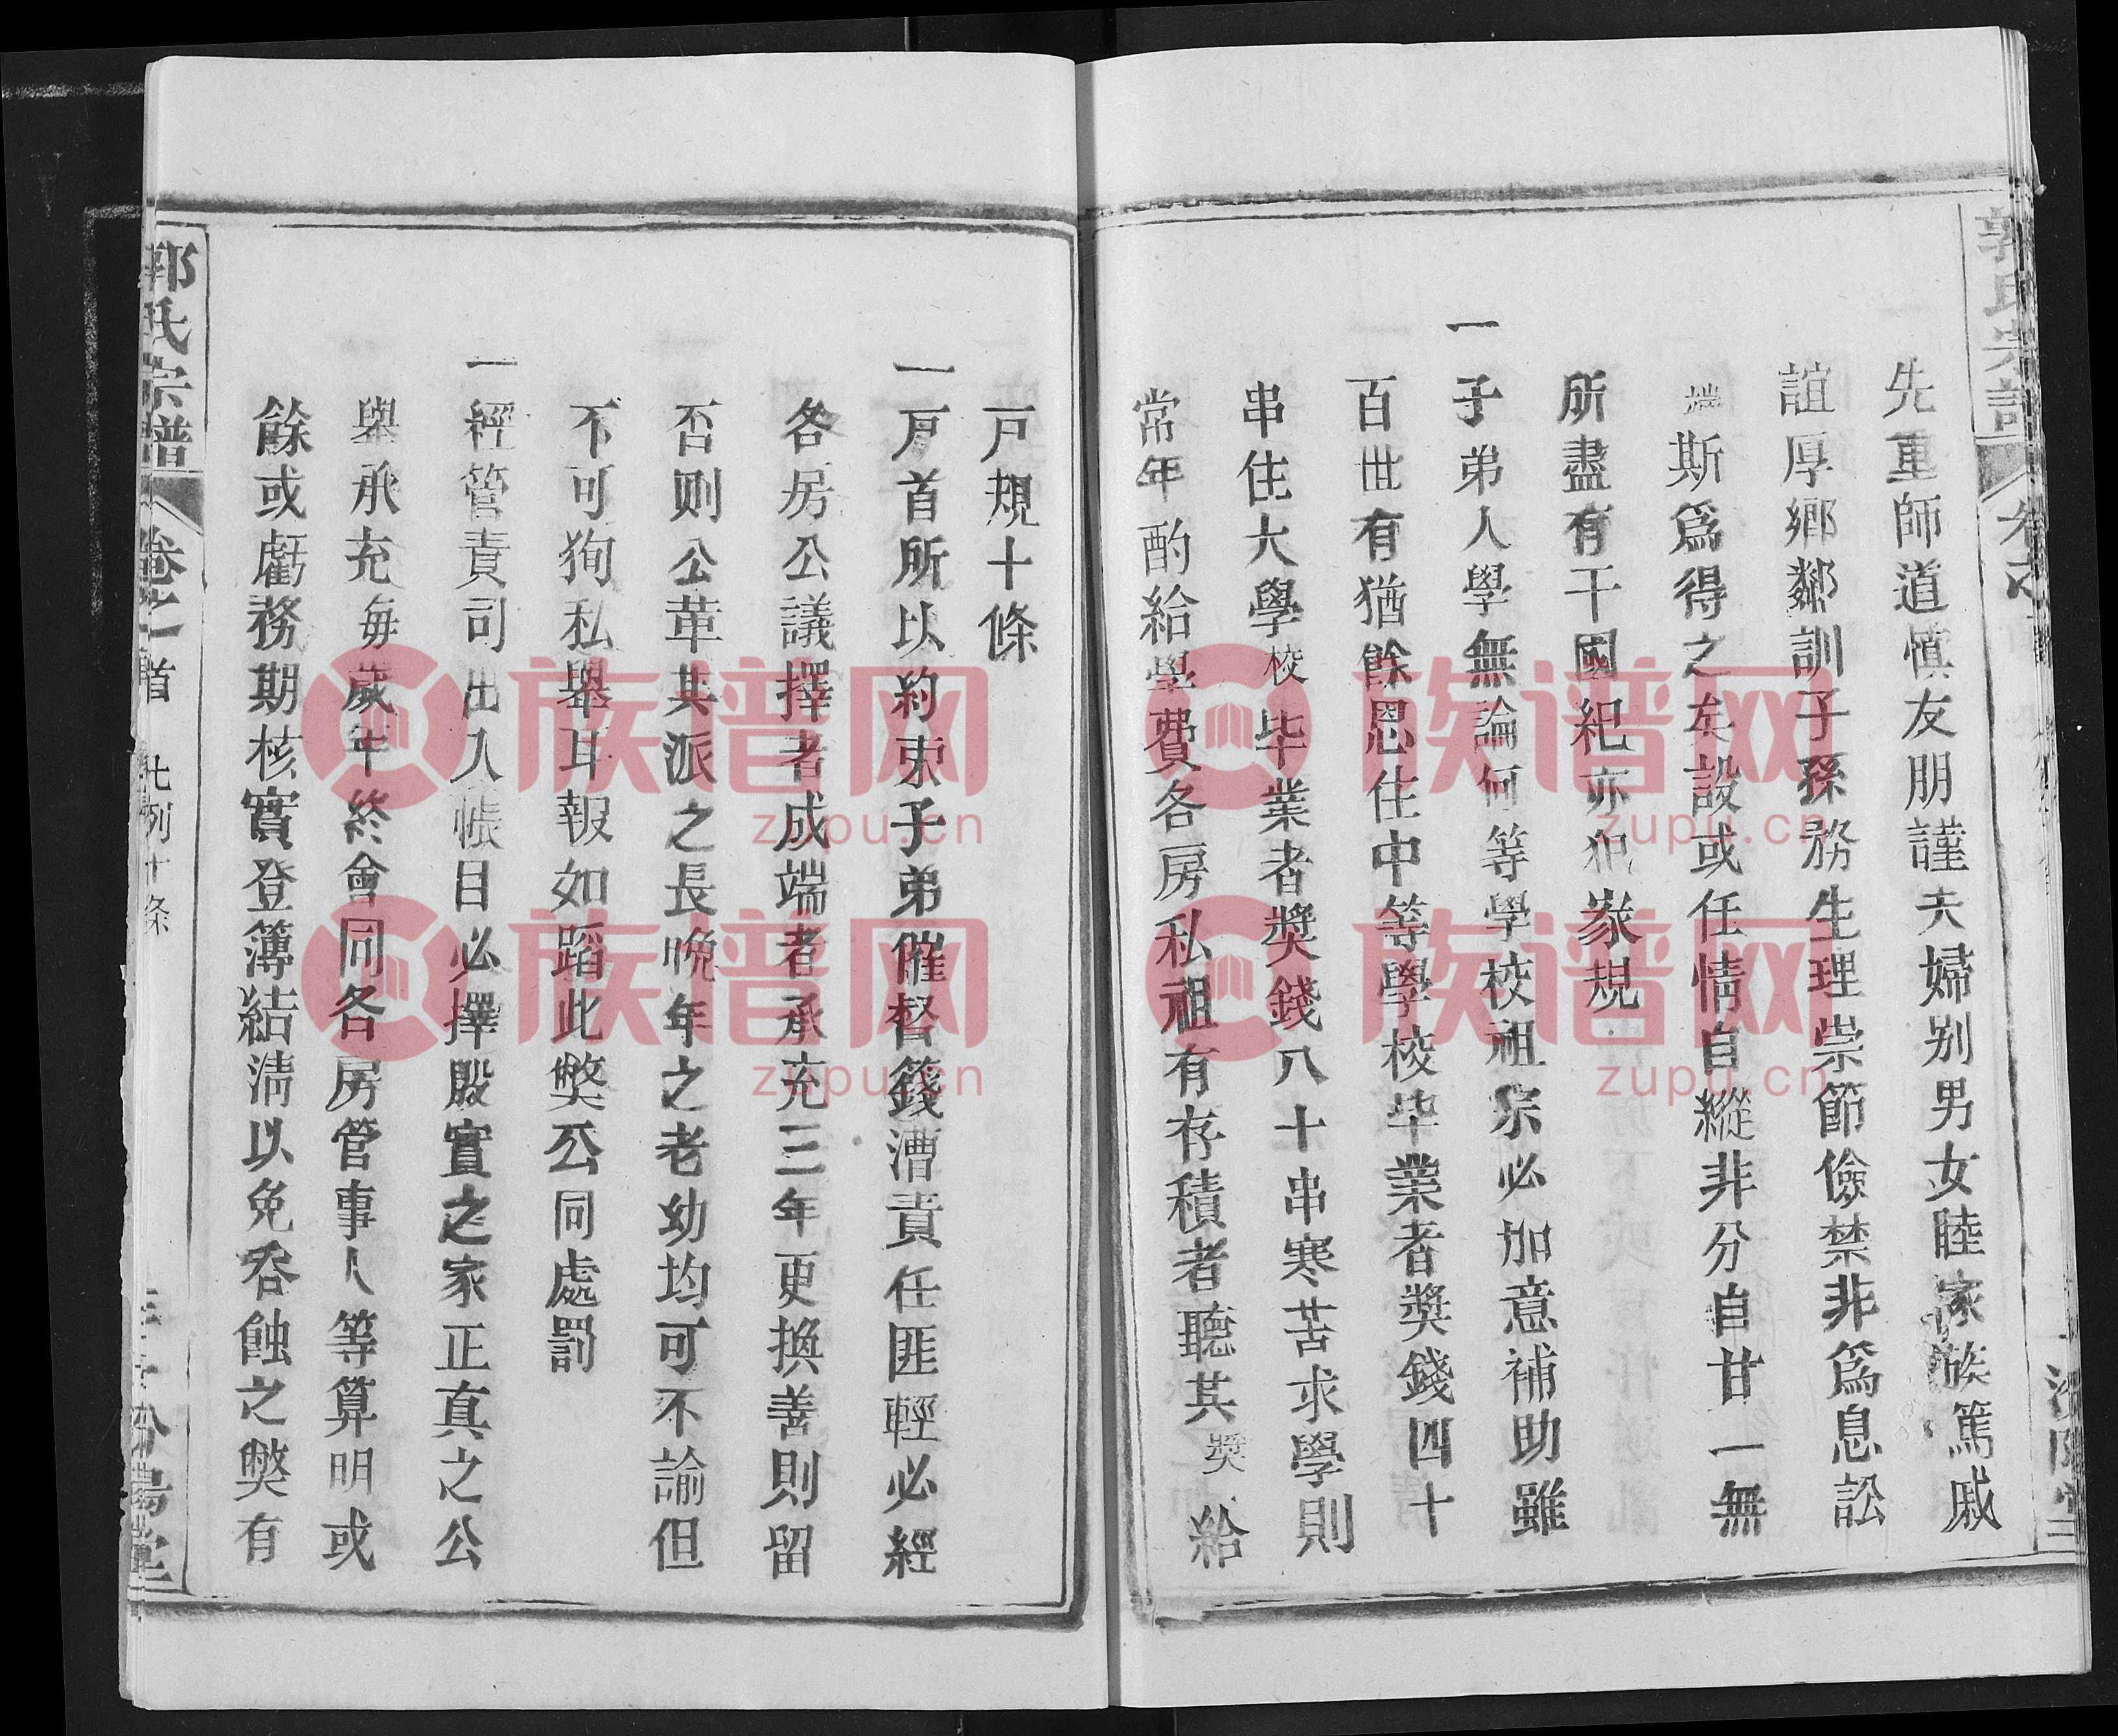 先重師道慎友朋謹夫婦別男女睦家族篤戚
誼厚鄉鄰訓子孫務生理崇節儉禁非為息訟
斯為得之矣設或任情自縱非分自甘一無
所盡有干國紀亦犯家規
一
子弟人學無論何等學校祖宗必加意補助雖
百世有猶餘恩住中等學校毕業者獎錢四十
串住大學校毕業者獎錢八十串寒苦求學則
常年酌給學費各房私祖有存積者聽其獎給
戸規十條
一戸首所以約束子弟催督錢漕責任匪輕必經
各房公議擇者成端者承充三年更換善則留
否则公革其派之長晚年之老幼均可不論但
不可狥私舉耳報如蹈此獘公同處罰
一經管責司出入帳目必擇殷實之家正真之公
舉承充每歲年終會同各房管事人等算明或
餘或虧務期核實登簿結清以免吞蝕之獘有
郭氏宗譜
卷之首
凡例十條
汾陽堂
族谱网
zupu.cn
族谱网
zupu.cn
族谱网
zupu.cn
族谱网
zupu.cn